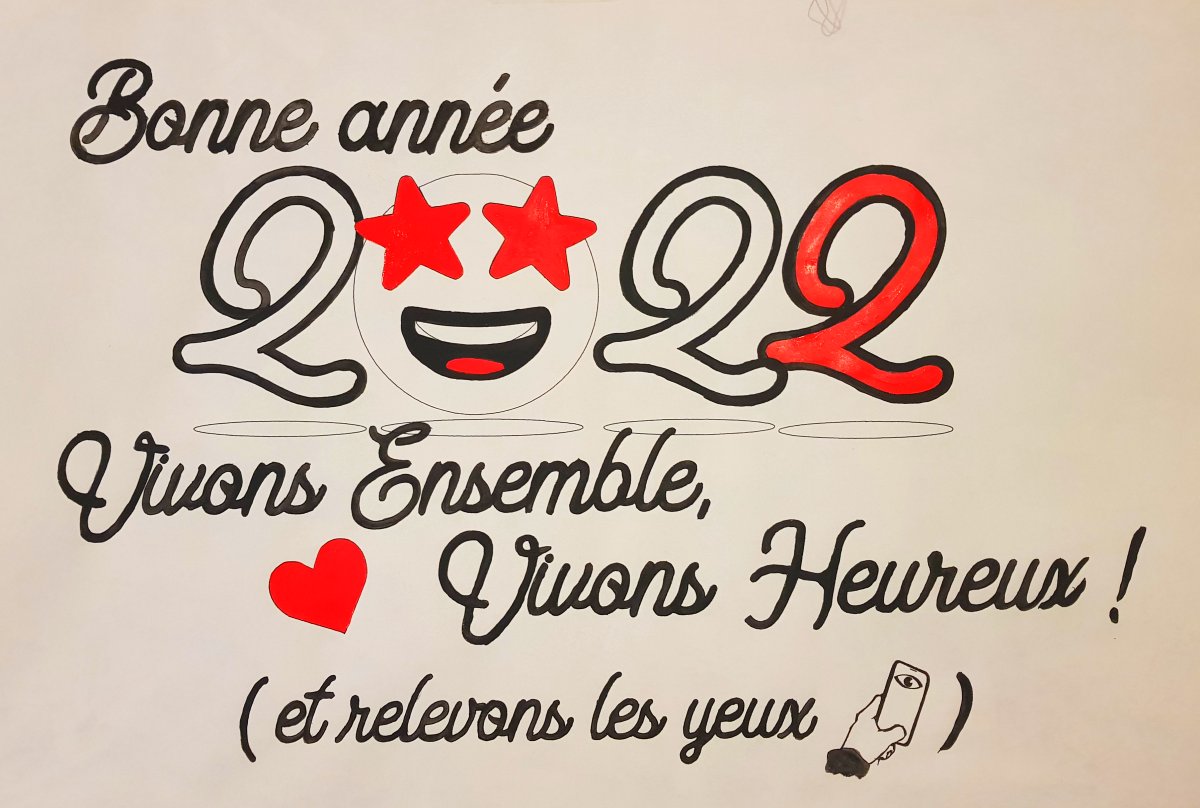 Bonne année
2022
Vivons Ensemble,
Vivons Heureux !
( et relevons les yeux )